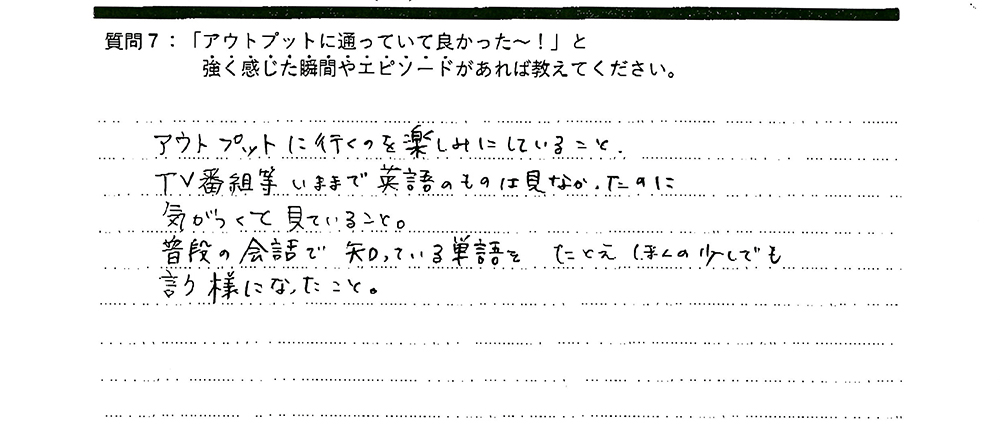 質問７：「アウトプットに通っていて良かった～！」と
強く感じた瞬間やエピソードがあれば教えてください。
アウトプットに行くのを楽しみにしていること.
TV番組等いままで英語のものは見なかったのに
気がつくて見ていること。
普段の会話で知っている単語を たとえ ほんの少しでも
言う様になったこと。